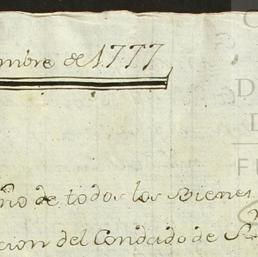 mbre de 1777
ño de todos los Bienes
cion del Condado de